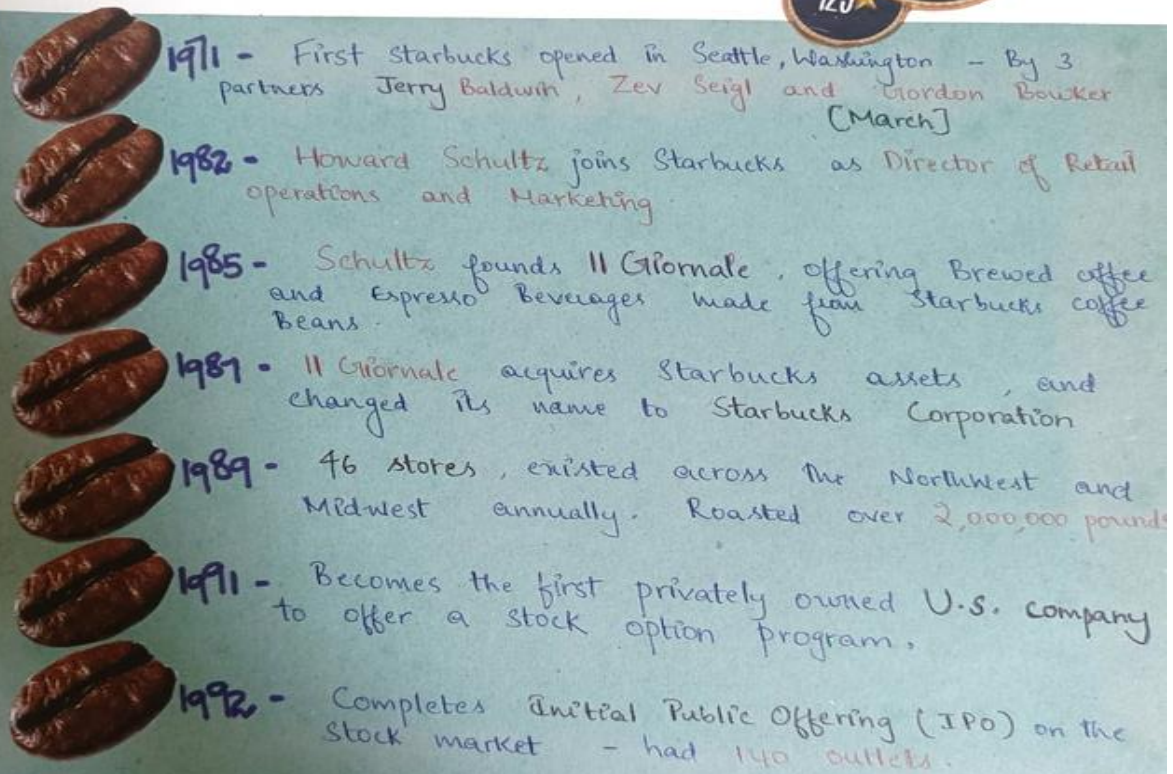 125
1971 - First Starbucks opened in Seattle, Washington - By 3
partners Jerry Baldwin, Zev Seigl and Gordon Bowker
[March]
1982 - Howard Schultz joins Starbucks as Director of Retail
operations and Marketing
1985 - Schultz founds Il Giornale, offering Brewed coffee
and Espresso Beverages made from Starbucks coffee
Beans.
1987 - Il Giornale acquires Starbucks assets, and
changed its name to Starbucks Corporation
1989 - 46 stores, existed across the Northwest and
Midwest annually. Roasted over 2,000,000 pounds
1991 - Becomes the first privately owned U.S. company
to offer a stock option program.
1992 - Completes Initial Public Offering (IPO) on the
Stock market - had 140 outlets.